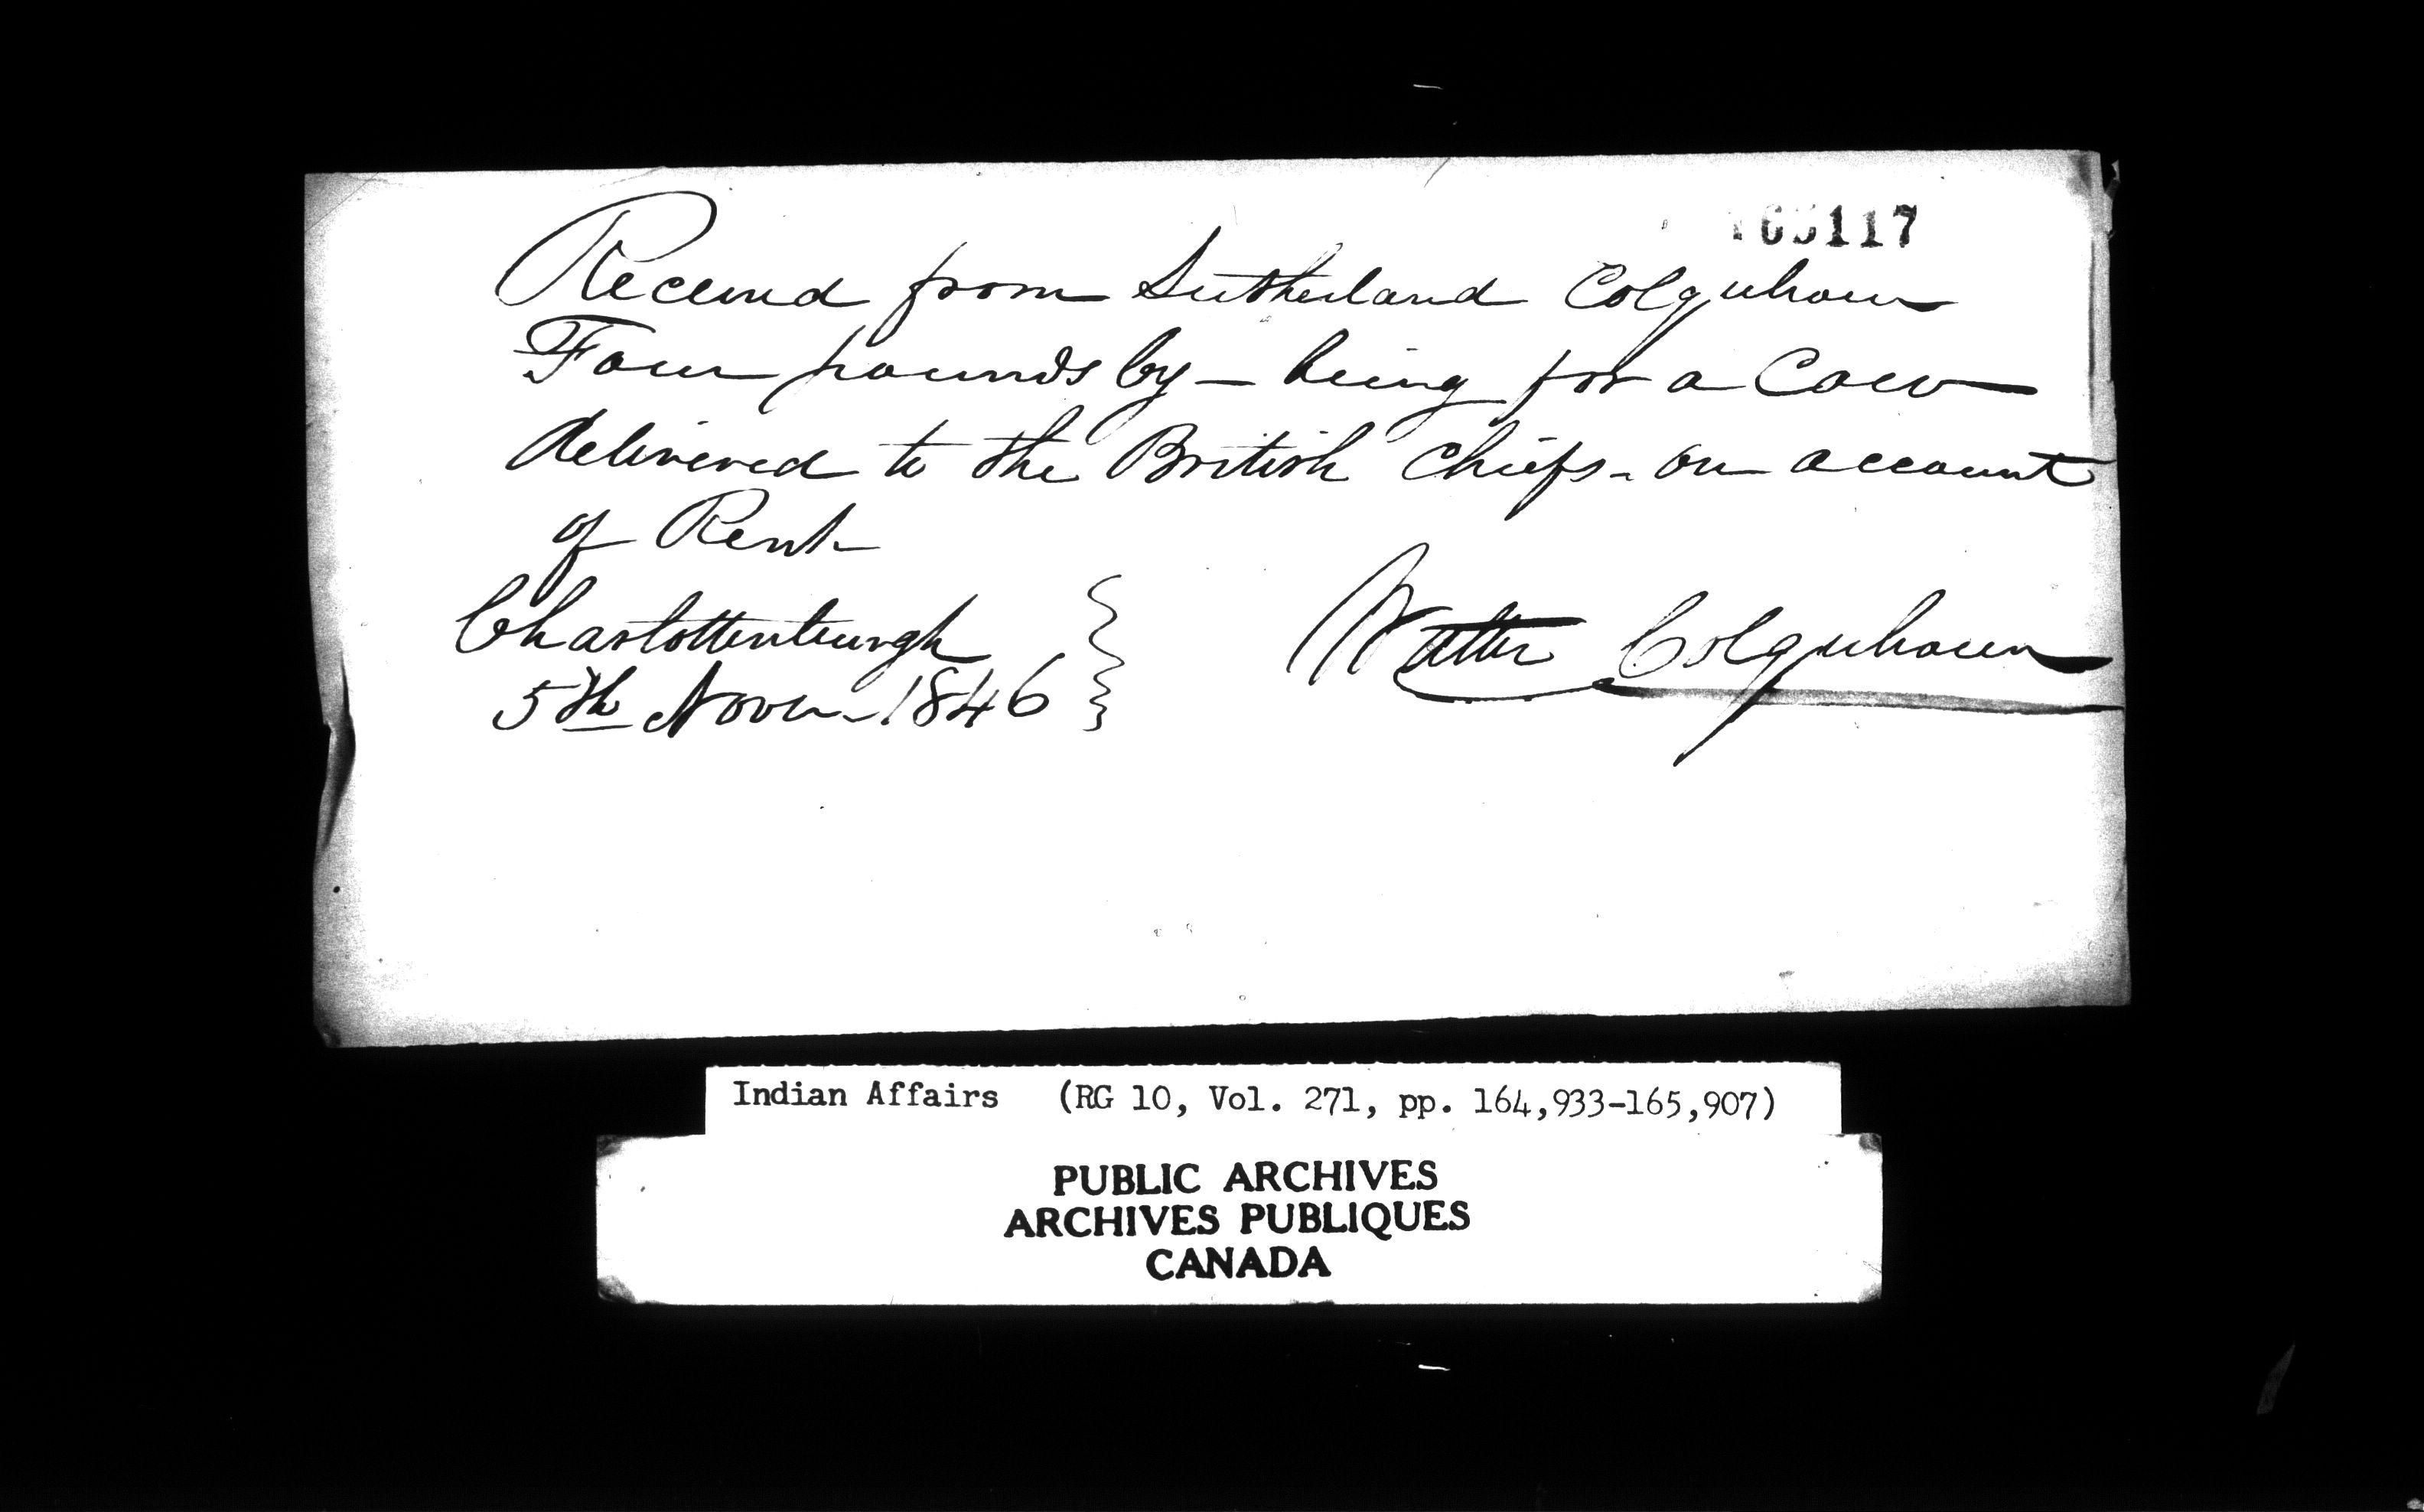 165117
Received from Sutherland Colquhoun
Four pounds Cy — being for a Cow
delivered to the British Chiefs - on account
of Rent
Charlottenburgh
5th Novr - 1846
Walter Colquhoun
Indian Affairs (RG 10, Vol. 271, pp. 164,933-165,907)
PUBLIC ARCHIVES
ARCHIVES PUBLIQUES
CANADA